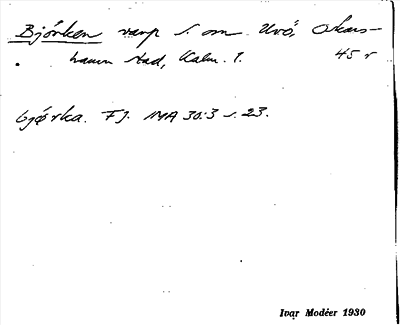 Björken varp S. om Uvö, Oskars-
hamn stad, Kalm. l. 45 r
björka. FJ. MA 30:3 s. 23.
Ivar Modéer 1930